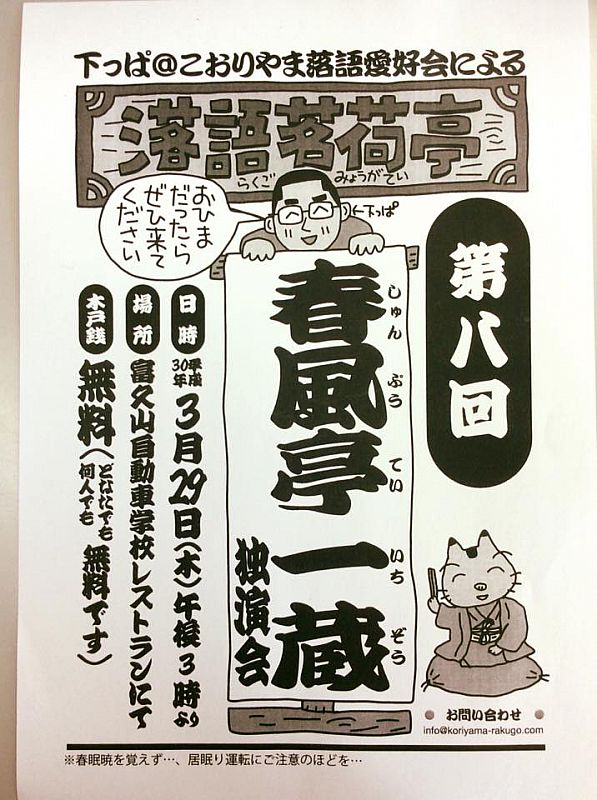 下っぱ@こおりやま落語愛好会による
落語茗荷亭
らくご みょうがてい
おひま
だったら
ぜひ来て
ください
←下っぱ
第八回
春風亭一蔵
しゅんぷうていいちぞう
独演会
日時
平成30年3月29日(木)午後3時より
場所
富久山自動車学校レストランにて
木戸銭
無料(どなたでも何人でも無料です)
お問い合わせ
info@koriyama-rakugo.com
※春眠暁を覚えず…、居眠り運転にご注意のほどを…